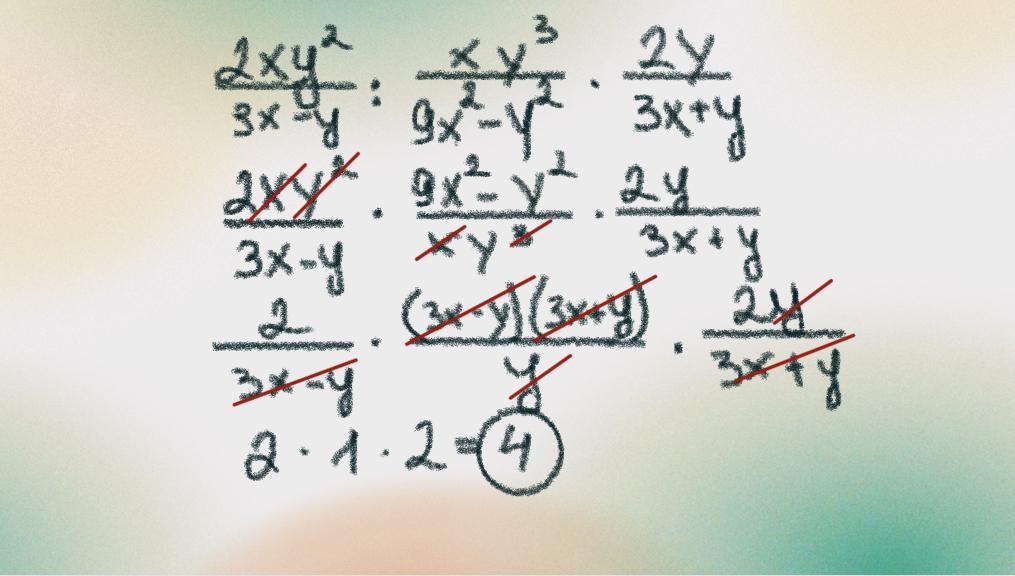 2xy²/(3x-y) : xy³/(9x²-y²) · 2y/(3x+y)
2xy²/(3x-y) · (9x²-y²)/(xy³) · 2y/(3x+y)
2/(3x-y) · (3x-y)(3x+y)/y · 2y/(3x+y)
2 · 1 · 2 = 4